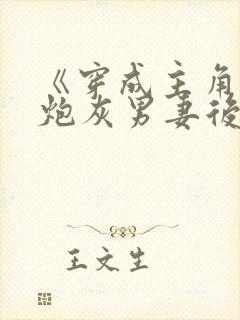 《穿成主角
炮灰男妻後
王文生